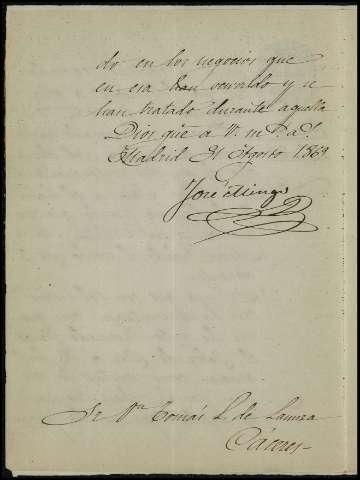 do en los negocios que
en esa han ocurrido y se
han tratado durante aquella
Dios gûe a V. m.s a.s
Madrid 31 Agosto 1869
José Mingo
Sr Dn Tomás L. de
Cáceres